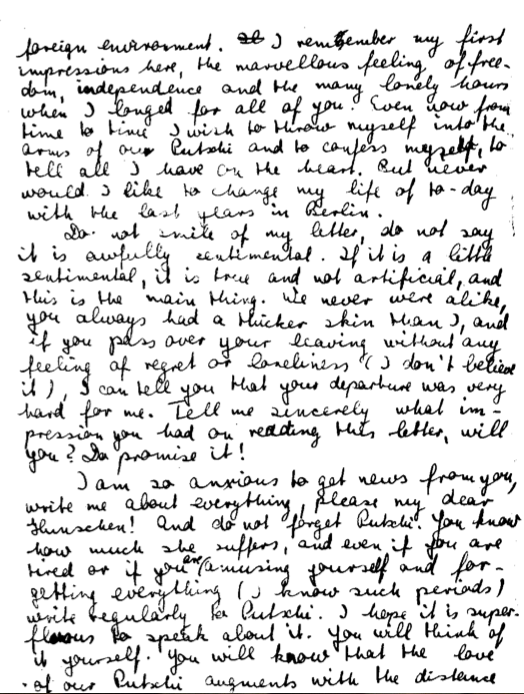 foreign environment. I remember my first
impressions here, the marvellous feeling of free-
dom, independence and the many lonely hours
when I longed for all of you. Even now from
time to time I wish to throw myself into the
arms of our Putschi and to confess myself, to
tell all I have on the heart. But never
would I like to change my life of to-day
with the last years in Berlin.
Do not smile of my letter, do not say
it is awfully sentimental. If it is a little
sentimental, it is true and not artificial, and
this is the main thing. We never were alike,
you always had a thicker skin than I, and
if you pass over your leaving without any
feeling of regret or loneliness (I don't believe
it), I can tell you that your departure was very
hard for me. Tell me sincerely what im-
pression you had on reading this letter, will
you? Do promise it!
I am so anxious to get news from you,
write me about everything, please my dear
! And do not forget Putschi. You know
how much she suffers, and even if you are
tired or if you are amusing yourself and for-
getting everything (I know such periods)
write regularly to Putschi. I hope it is super-
fluous to speak about it. You will think of
it yourself. You will know that the love
of our Putschi augments with the distance